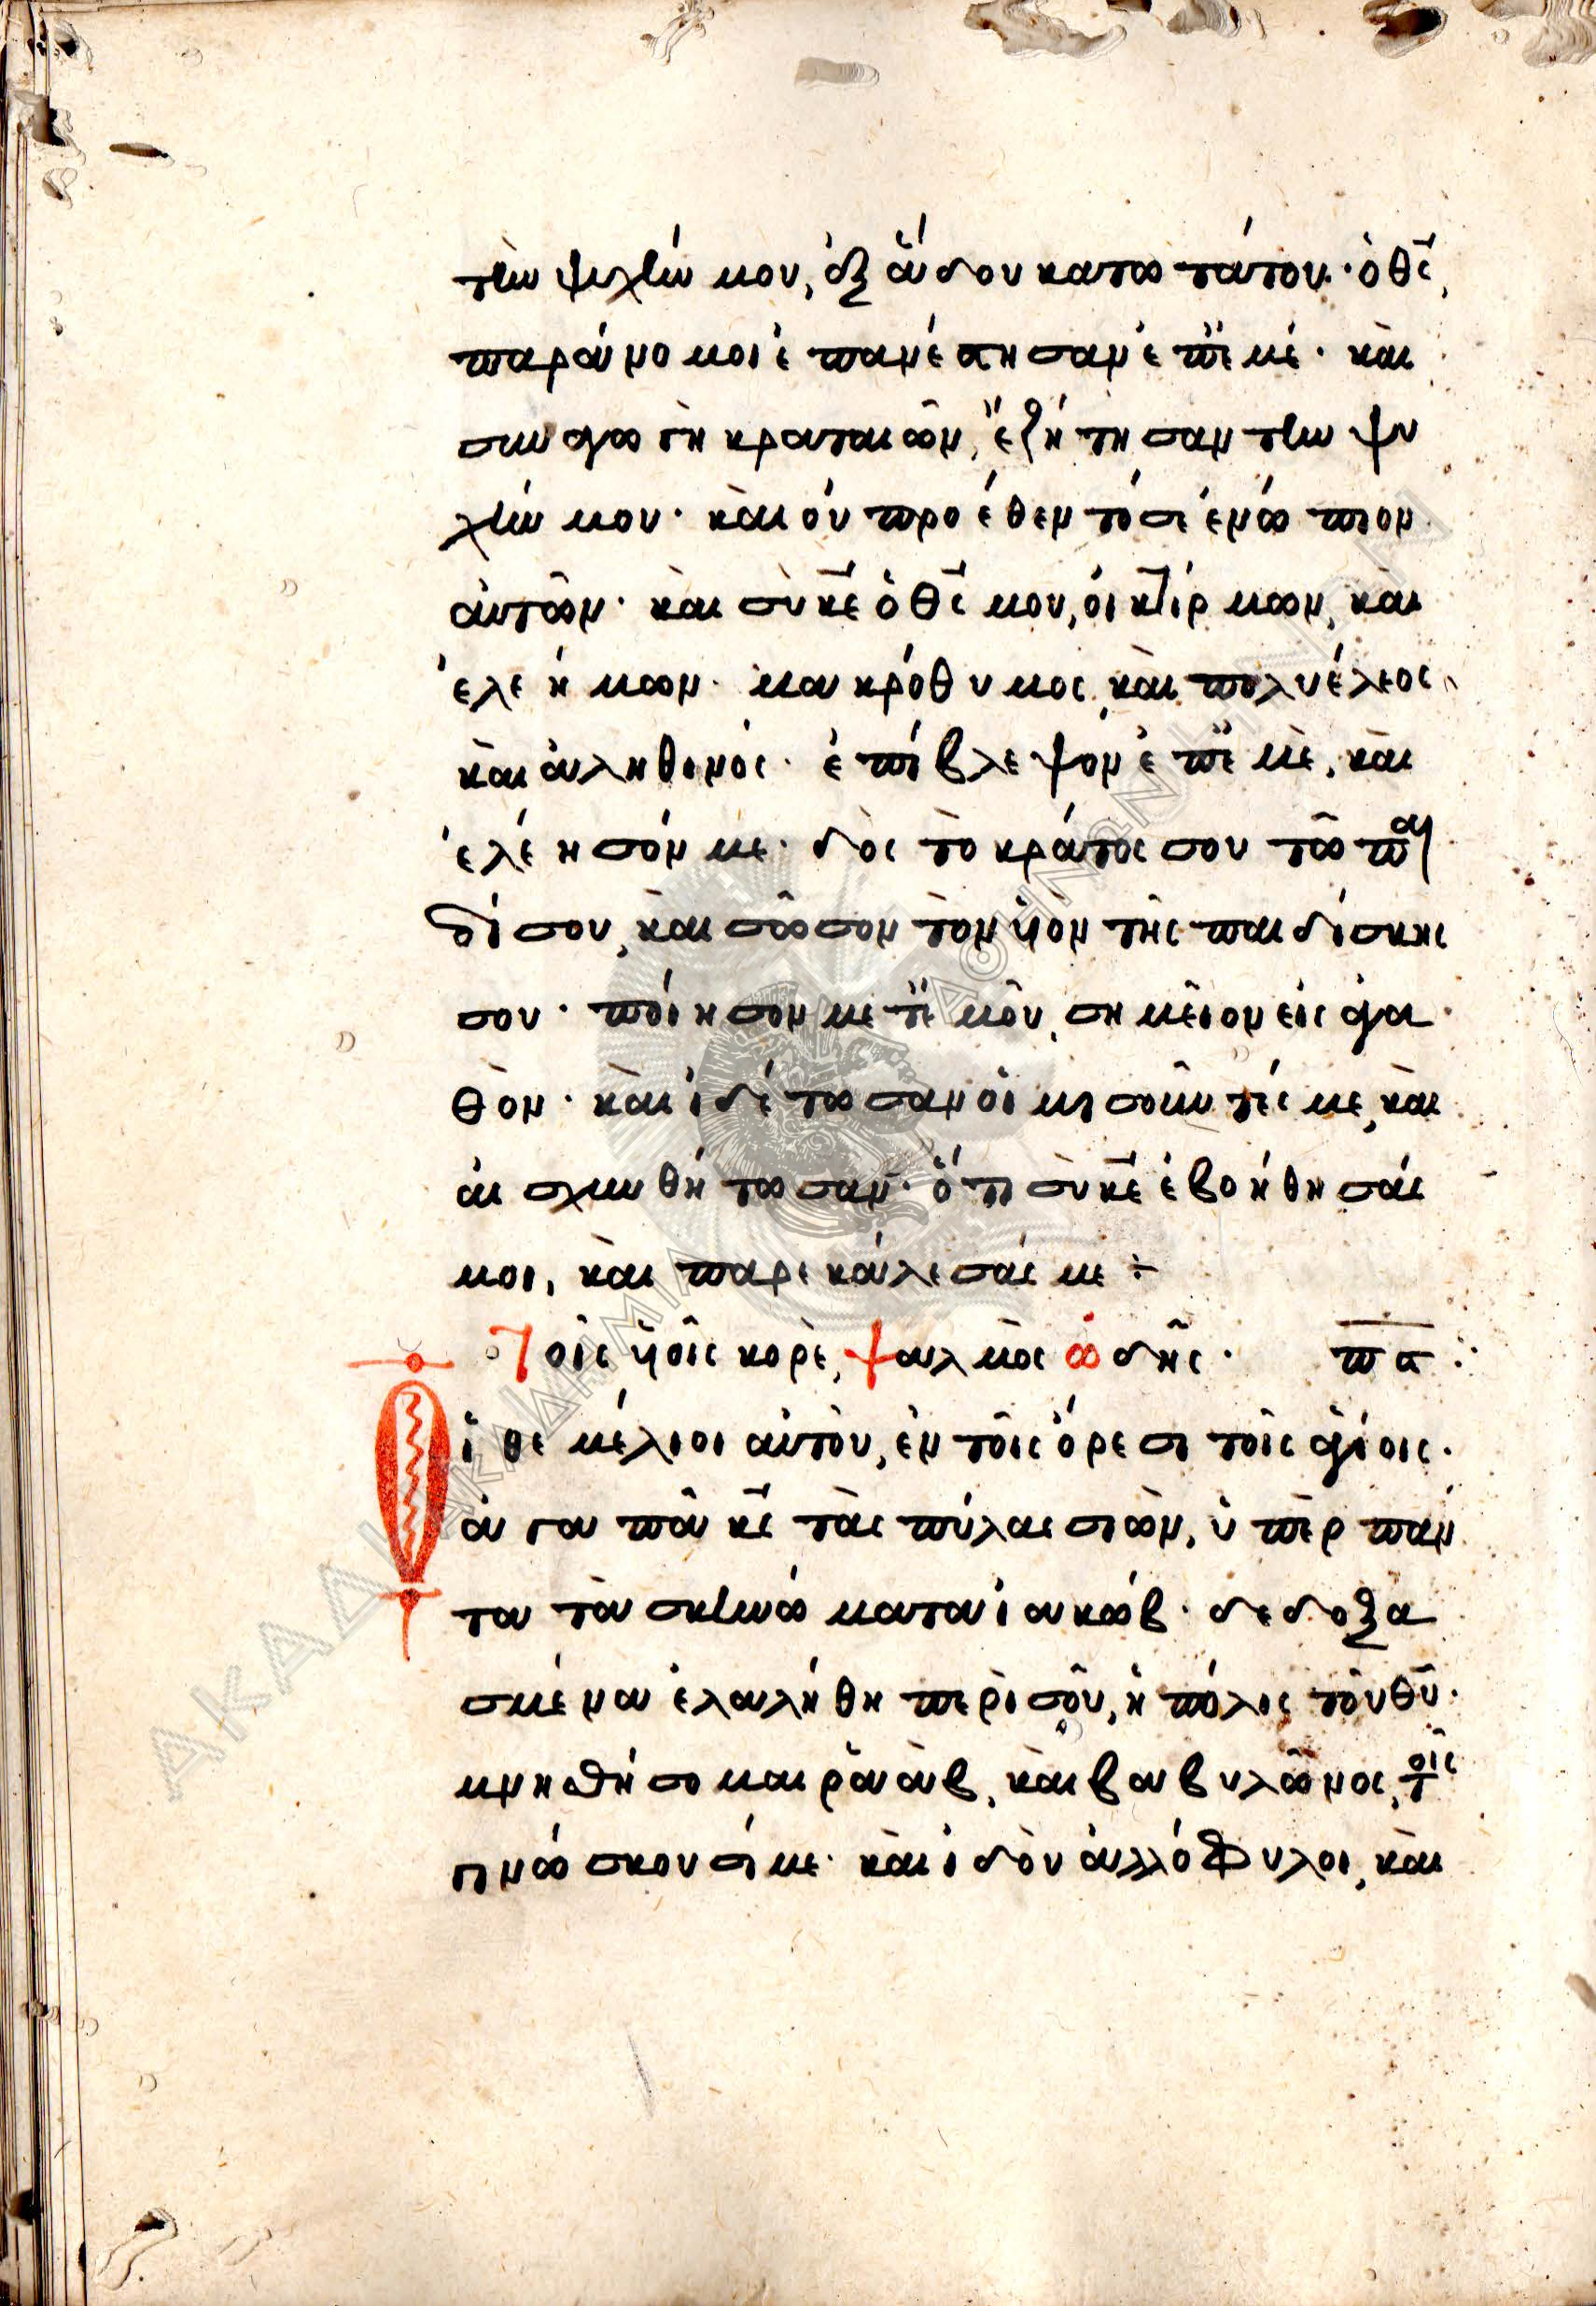 τὴν ψυχήν μου, ἐξ ἅδου κατωτάτου· ὁ θς̄,
παράνομοι ἐπανέστησαν ἐπ̈ι μέ· καὶ
συναγωγὴ κραταιῶν, ἐζήτησαν τὴν ψυ
χήν μου· καὶ οὐ προέθεντό σε ἐνώπιον
αὐτῶν· καὶ σὺ κε̄ ὁ θς̄ μου, οἰκτίρμων, καὶ
ἐλεήμων· μακρόθυμος, καὶ πολυέλεος
καὶ ἀληθινός· ἐπίβλεψον ἐπ̈ι μὲ, καὶ
ἐλέησόν με· δὸς τὸ κράτος σου τῶ παι
δί σου, καὶ σῶσον τὸν ὑὸν τῆς παιδίσκης
σου· ποίησον μετ̈ ἐμοῦ, σημεῖον εἰς ἀγα
θὸν· καὶ ἰδέτωσαν οἱ μισοῦντές με, καὶ
αἰσχυνθήτωσαν· ὅτι σὺ κε̄ ἐβοήθησάς
μοι, καὶ παρεκάλεσάς με ÷
Τοῖς ὑοῖς κορὲ, ψαλμὸς ὠδῆς· π̄ς̄ :·
Οἱ θεμέλιοι αὐτοῦ, ἐν τοῖς ὄρεσι τοῖς ἁγίοις·
ἀγαπᾶ κς̄ τὰς πύλας σιὼν, ὑπὲρ πάν
τα τὰ σκηνώματα ἰακώβ· δεδοξα
σμένα ἐλαλήθη περὶ σοῦ, ἡ πόλις τοῦ θῡ·
μνησθήσομαι ῥαὰβ, καὶ βαβυλῶνος, τοῖς
γινώσκουσί με· καὶ ἰδοὺ ἀλλόφυλοι, καὶ
ΑΚΑΔΗΜΙΑ ΑΘΗΝΩΝ